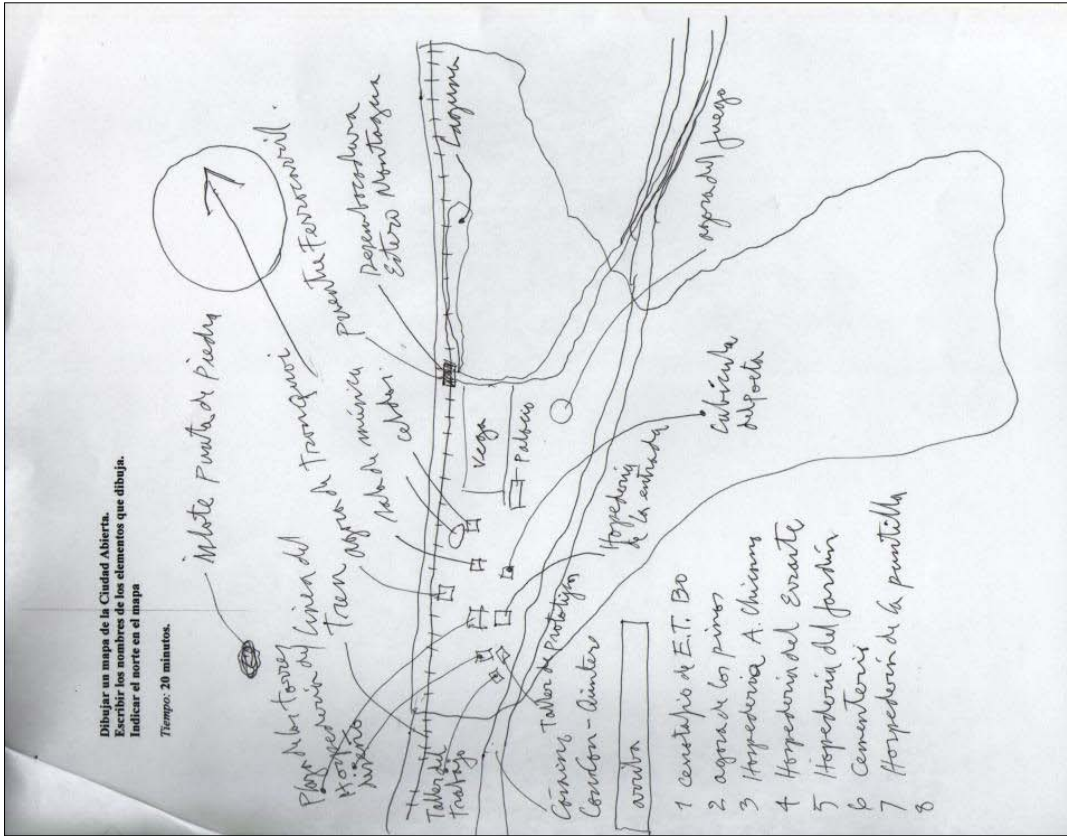 Dibujar un mapa de la Ciudad Abierta.
Escribir los nombres de los elementos que dibuja.
Indicar el norte en el mapa
Tiempo: 20 minutos.
Islote Punta de Piedra
Plaza de las torres
Hospedería del
Línea del
Tren
agora de Tronquoi
sala de música
celdas
puente Ferrocarril.
Desembocadura
Estero Mantagua
Laguna
Taller del
Trabajo
Vega
Palacio
agora del fuego
Cubícula
del poeta
Hospedería
de la entrada
Taller de prototipos
Camino
Concon - Quintero
arriba
1 cenotafio de E.T. Bo
2 agora de los pinos
3 Hospedería A.
4 Hospedería del Errante
5 Hospedería del jardín
6 Cementerio
7 Hospedería de la puntilla
8